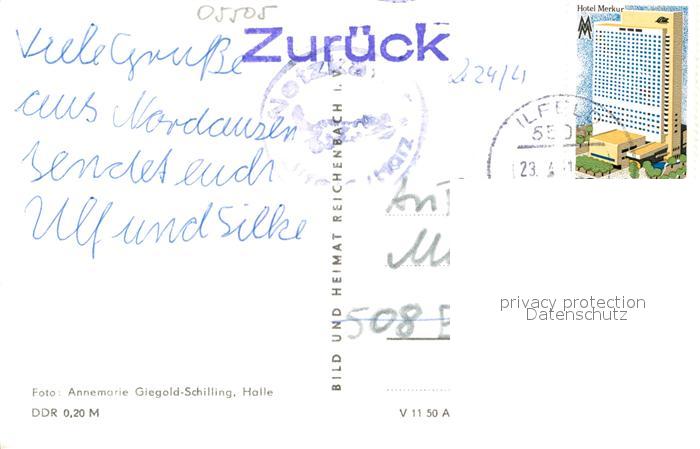 05505
Viele Grüße
aus Nordausen
sendet euch
Ulf und Silke
Zurück
224/4
Hotel Merkur
MM
ILFELD
5505
23.
BILD UND HEIMAT REICHENBACH I. V.
508
privacy protection
Datenschutz
Foto: Annemarie Giegold-Schilling, Halle
DDR 0,20 M
V 11 50 A